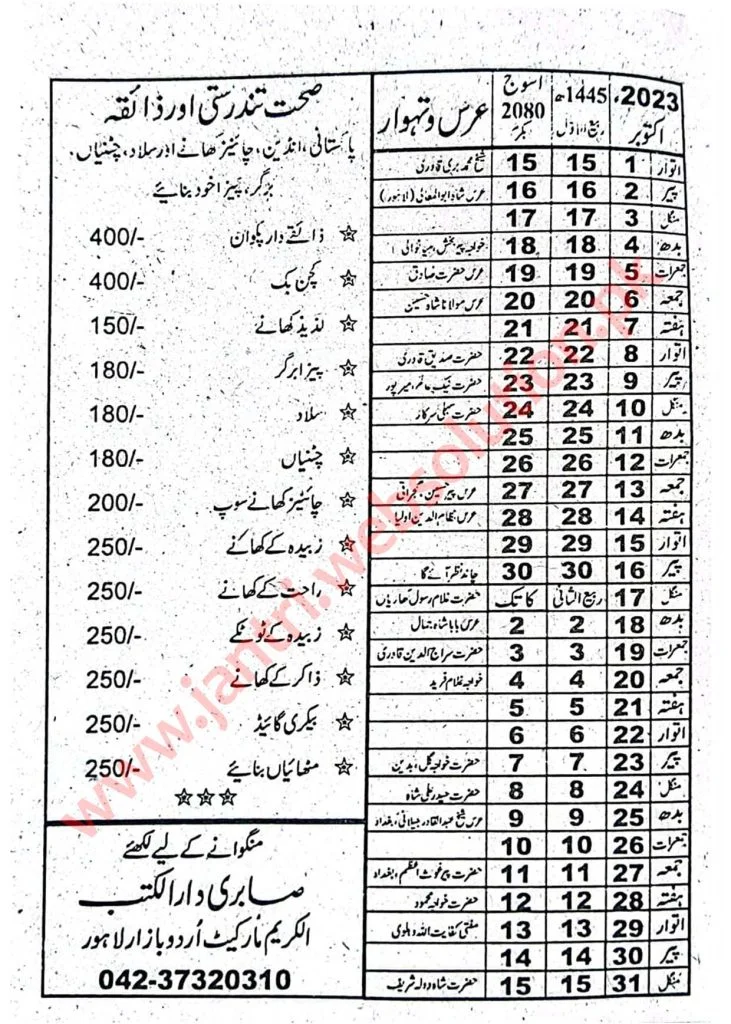 ۲۰۲۳ء اکتوبر | 1445ھ ربیع الاوّل | اسوج 2080 بکر | عرس و تہوار
اتوار 1 15 15 شیخ محمد بری قادری
پیر 2 16 16 عرس شاہ ابوالمعالی (لاہور)
منگل 3 17 17
بدھ 4 18 18 خواجہ پیر بخش،
جمعرات 5 19 19 عرس حضرت صادق
جمعہ 6 20 20 عرس مولانا شاہ حسین
ہفتہ 7 21 21
اتوار 8 22 22 حضرت صدیق قادری
پیر 9 23 23 حضرت نیک عالم، میرپور
منگل 10 24 24 حضرت سخی سرکار
بدھ 11 25 25
جمعرات 12 26 26
جمعہ 13 27 27 عرس پیر حسین، گجراتی
ہفتہ 14 28 28 عرس نظام الدین اولیا
اتوار 15 29 29
پیر 16 30 30 چاند نظر آئے گا
منگل 17 ربیع الثانی کاتک حضرت غلام رسول
بدھ 18 2 2 عرس بابا شاہ جمال
جمعرات 19 3 3 حضرت سراج الدین قادری
جمعہ 20 4 4 خواجہ غلام فرید
ہفتہ 21 5 5
اتوار 22 6 6
پیر 23 7 7 حضرت خواجہ گل، بدین
منگل 24 8 8 حضرت حیدر علی شاہ
بدھ 25 9 9 عرس شیخ عبدالقادر جیلانی، بغداد
جمعرات 26 10 10
جمعہ 27 11 11 حضرت پیر غوث اعظم، بغداد
ہفتہ 28 12 12 حضرت خواجہ محمود
اتوار 29 13 13 مفتی کفایت اللہ دہلوی
پیر 30 14 14
منگل 31 15 15 حضرت شاہ دولہ شریف
صحت تندرستی اور ذائقہ
پاکستانی، انڈین، چائنیز کھانے اور سلاد، چٹنیاں،
برگر، پیزا خود بنائیے
ذائقے دار پکوان 400/-
کچن بک 400/-
لذیذ کھانے 150/-
پیزا برگر 180/-
سلاد 180/-
چٹنیاں 180/-
چائنیز کھانے سوپ 200/-
زبیدہ کے کھانے 250/-
راحت کے کھانے 250/-
زبیدہ کے ٹوٹکے 250/-
ذاکر کے کھانے 250/-
بیکری گائیڈ 250/-
مٹھائیاں بنائیے 250/-
منگوانے کے لیے لکھئے
صابری دارالکتب
الکریم مارکیٹ اُردو بازار لاہور
042-37320310
www.jantri.websolution.pk